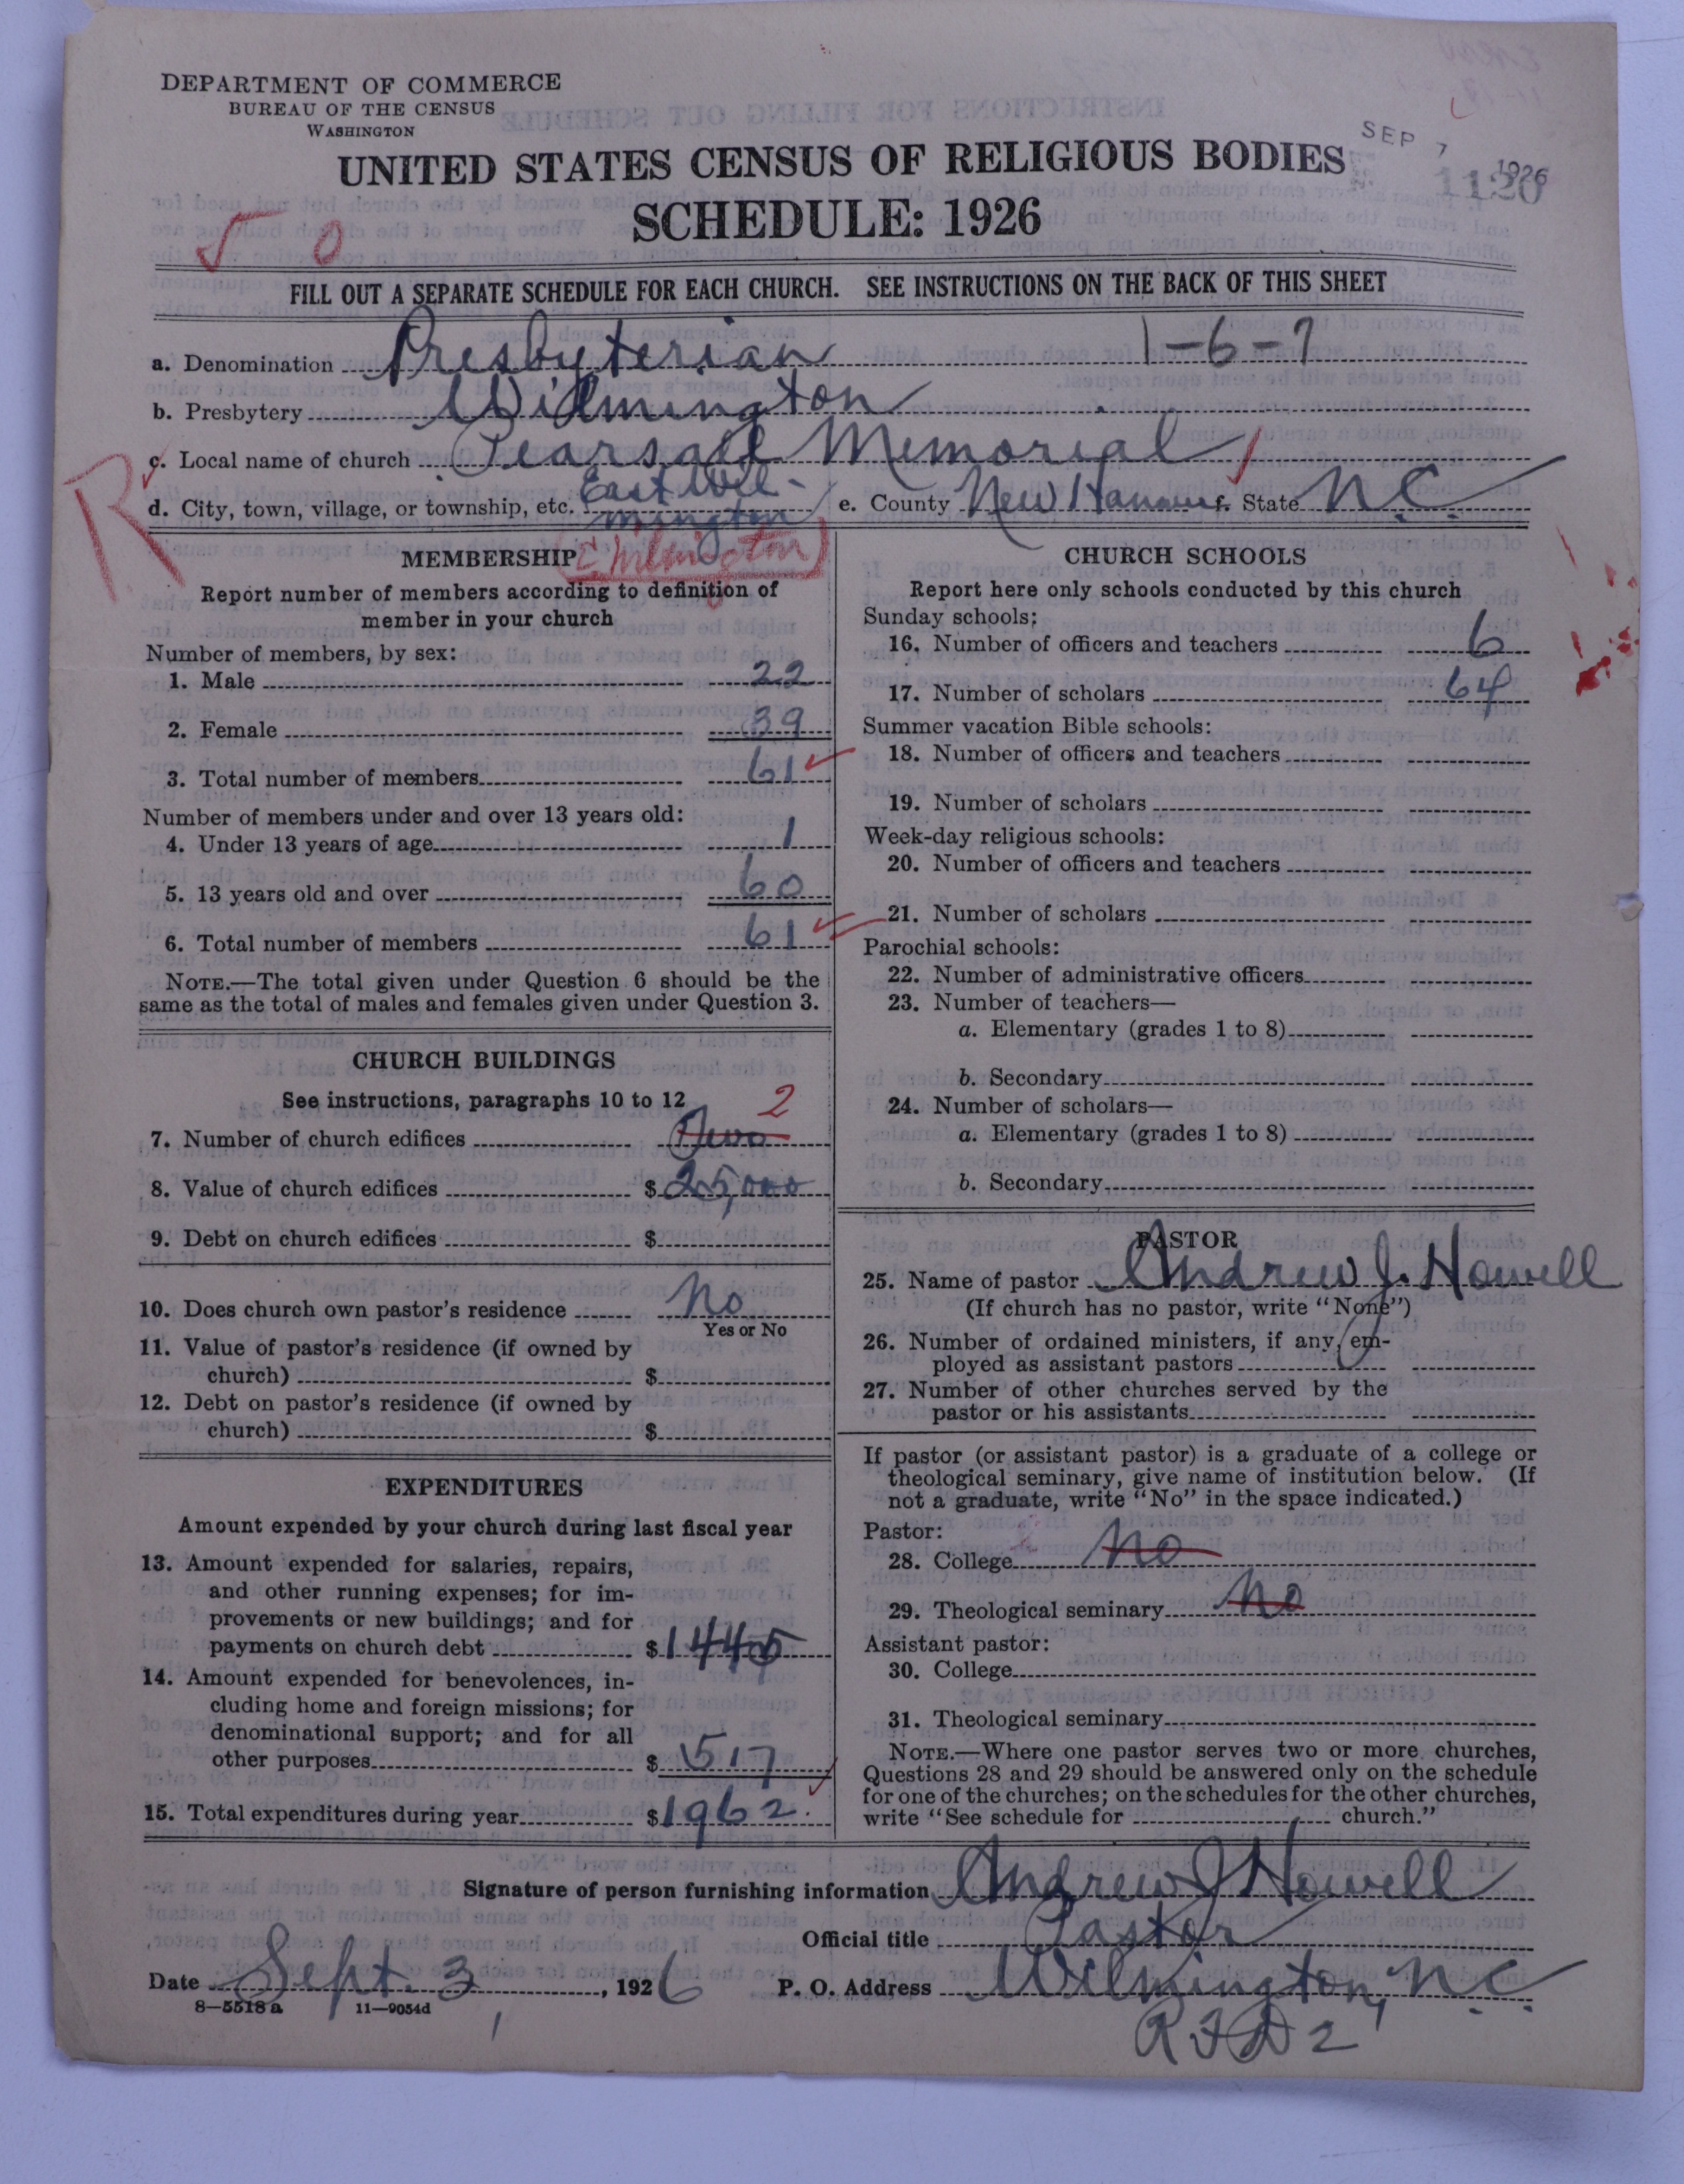 DEPARTMENT OF COMMERCE
BUREAU OF THE CENSUS
WASHINGTON
SEP 7 1926
1120
UNITED STATES CENSUS OF RELIGIOUS BODIES
SCHEDULE: 1926
0
FILL OUT A SEPARATE SCHEDULE FOR EACH CHURCH. SEE INSTRUCTIONS ON THE BACK OF THIS SHEET
a. Denomination Presbyterian 1-6-7
b. Presbytery Wilmington
R
c. Local name of church Pearsall Memorial
d. City, town, village, or township, etc. East Wil-mington e. County New Hanover f. State N.C.
E Wilmington
MEMBERSHIP
Report number of members according to definition of
member in your church
Number of members, by sex:
1. Male 22
2. Female 39
3. Total number of members 61
Number of members under and over 13 years old:
4. Under 13 years of age 1
5. 13 years old and over 60
6. Total number of members 61
NOTE.—The total given under Question 6 should be the
same as the total of males and females given under Question 3.
CHURCH BUILDINGS
See instructions, paragraphs 10 to 12
7. Number of church edifices Two 2
8. Value of church edifices $ 25,000
9. Debt on church edifices $
10. Does church own pastor's residence No
Yes or No
11. Value of pastor's residence (if owned by
church) $
12. Debt on pastor's residence (if owned by
church) $
EXPENDITURES
Amount expended by your church during last fiscal year
13. Amount expended for salaries, repairs,
and other running expenses; for im-
provements or new buildings; and for
payments on church debt $ 1445
14. Amount expended for benevolences, in-
cluding home and foreign missions; for
denominational support; and for all
other purposes $ 517
15. Total expenditures during year $ 1962.
CHURCH SCHOOLS
Report here only schools conducted by this church
Sunday schools:
16. Number of officers and teachers 6
17. Number of scholars 64
Summer vacation Bible schools:
18. Number of officers and teachers
19. Number of scholars
Week-day religious schools:
20. Number of officers and teachers
21. Number of scholars
Parochial schools:
22. Number of administrative officers
23. Number of teachers—
a. Elementary (grades 1 to 8)
b. Secondary
24. Number of scholars—
a. Elementary (grades 1 to 8)
b. Secondary
PASTOR
25. Name of pastor Andrew J. Howell
(If church has no pastor, write "None")
26. Number of ordained ministers, if any, em-
ployed as assistant pastors
27. Number of other churches served by the
pastor or his assistants
If pastor (or assistant pastor) is a graduate of a college or
theological seminary, give name of institution below. (If
not a graduate, write "No" in the space indicated.)
Pastor:
28. College No
29. Theological seminary No
Assistant pastor:
30. College
31. Theological seminary
NOTE.—Where one pastor serves two or more churches,
Questions 28 and 29 should be answered only on the schedule
for one of the churches; on the schedules for the other churches,
write "See schedule for church."
Signature of person furnishing information Andrew J Howell
Official title Pastor
Date Sept. 3, 1926 P. O. Address Wilmington, N.C.
8—5518a 11—9054d
R F D 2